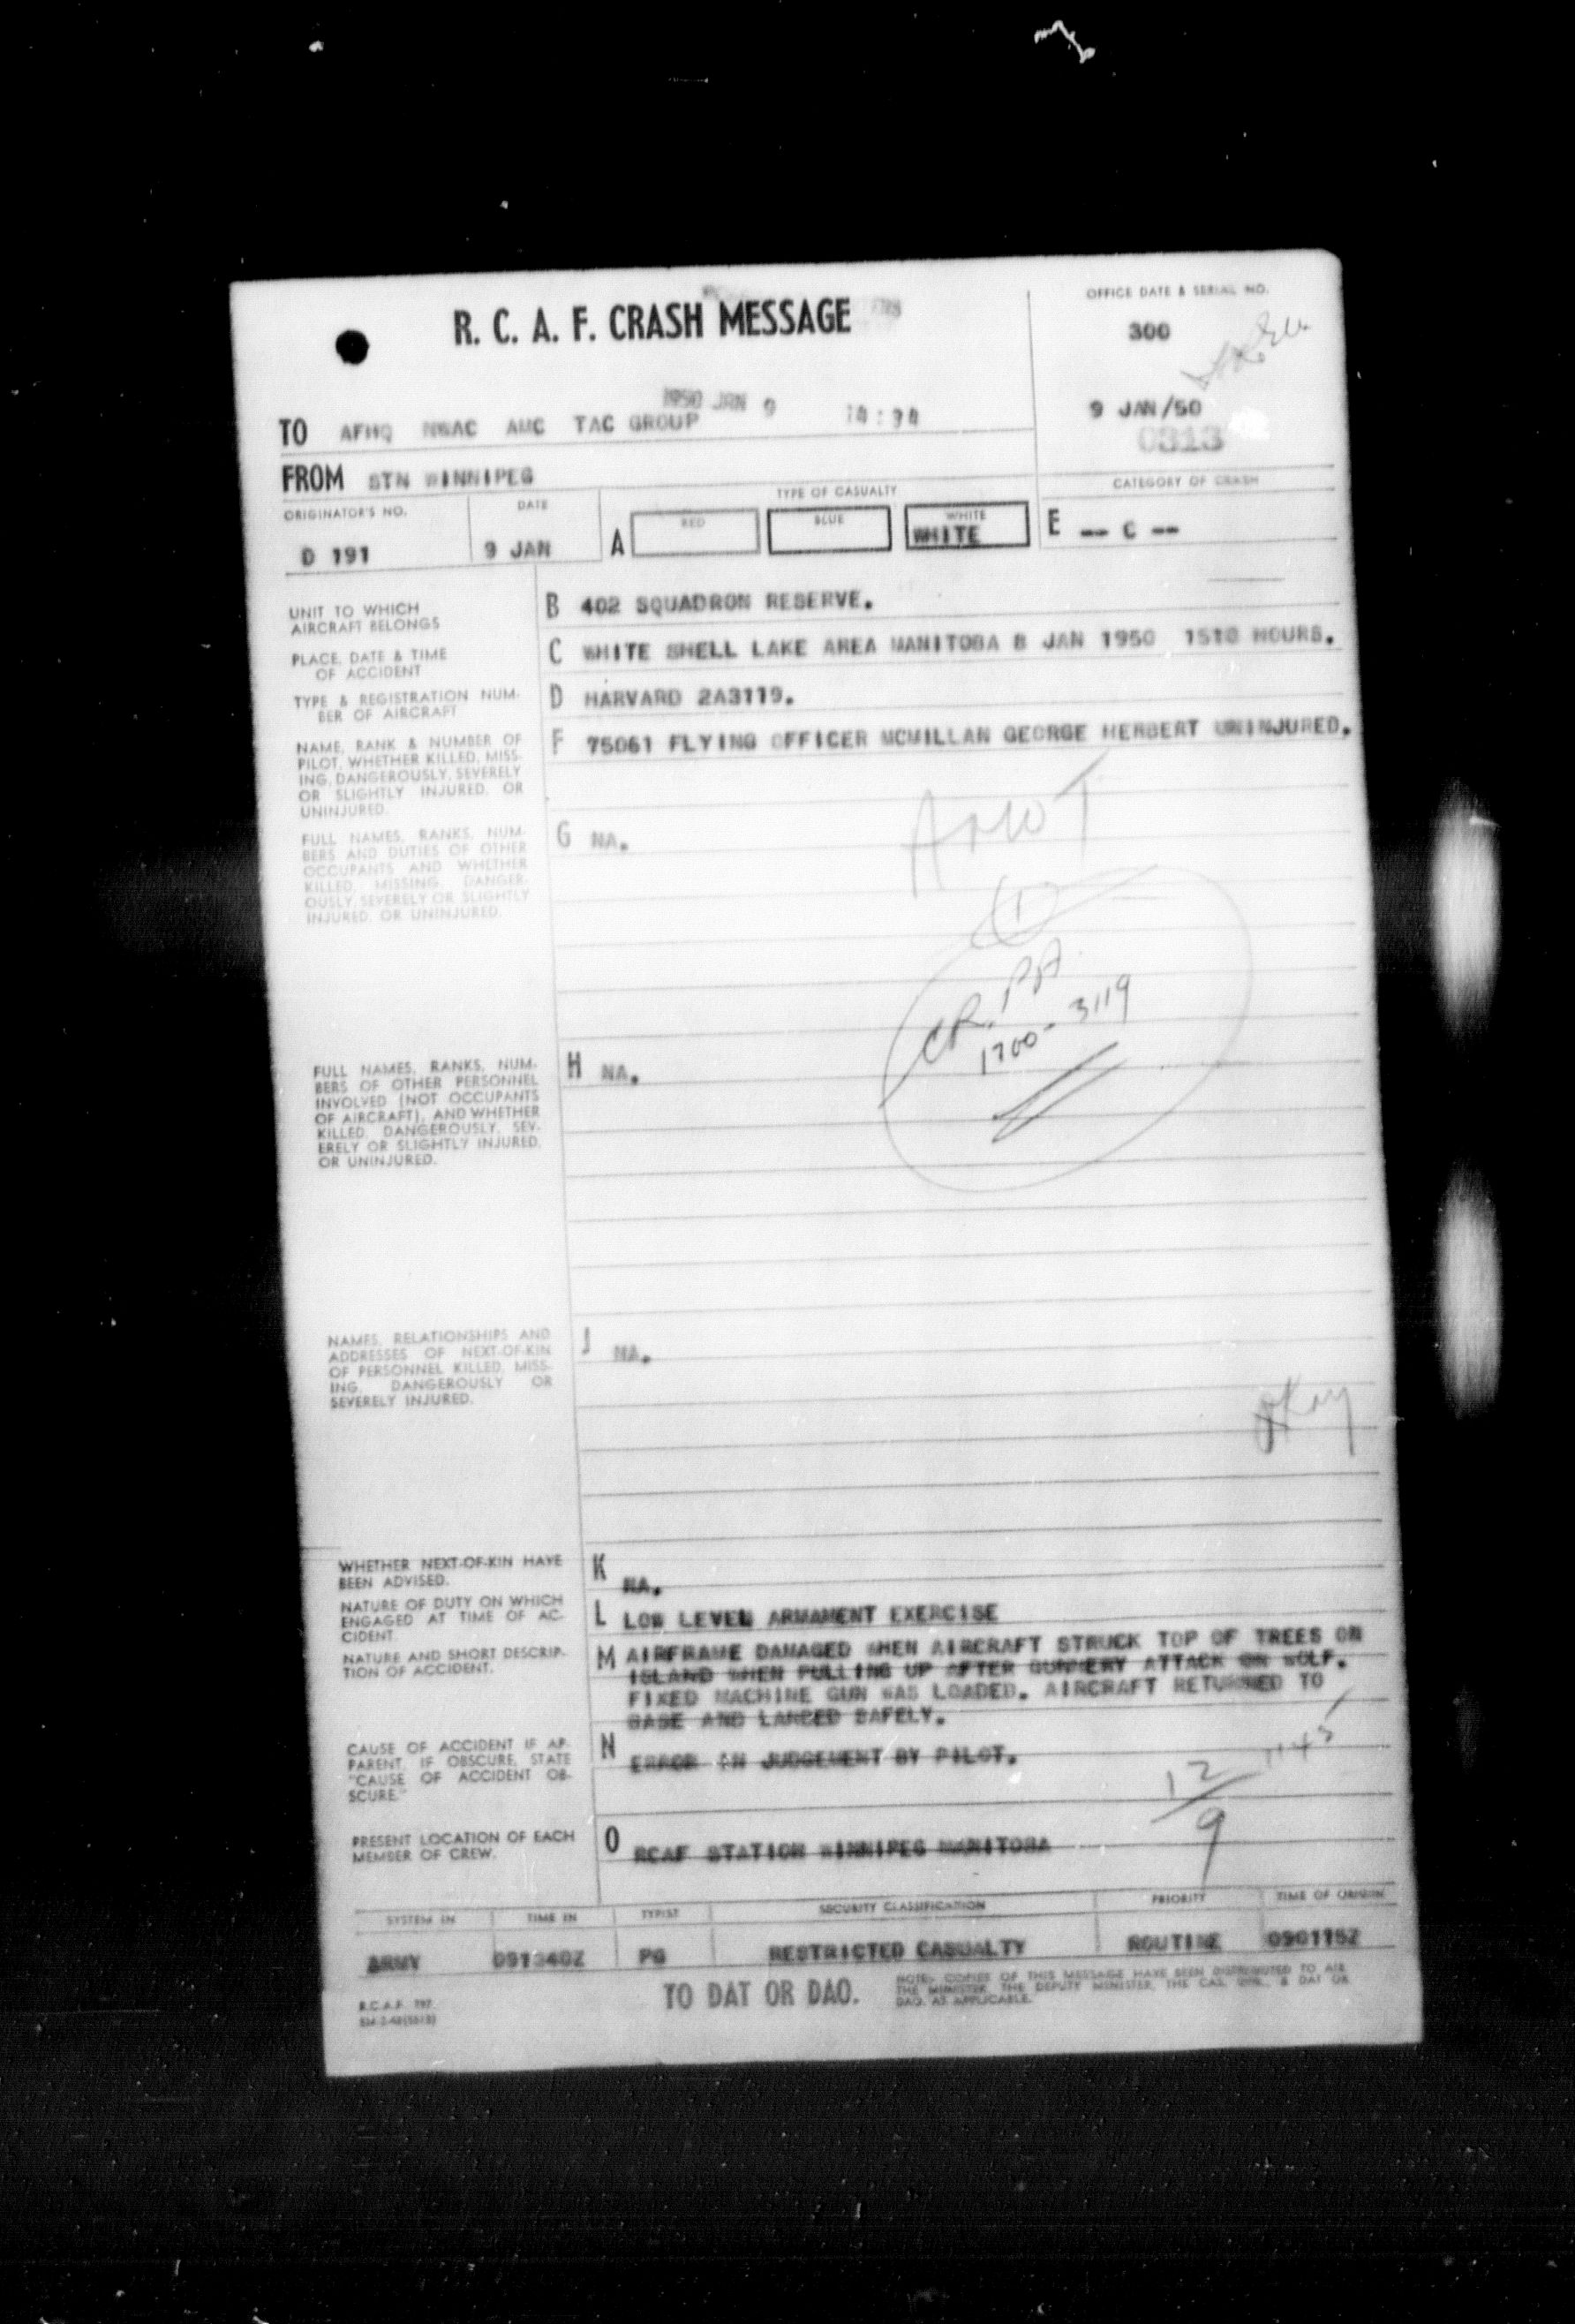 R. C. A. F. CRASH MESSAGE
OFFICE DATE & SERIAL NO.
300
1950 JAN 9
9 JAN/50
0313
TO AFHQ NWAC AMC TAC GROUP
FROM STN WINNIPEG
ORIGINATOR'S NO.
D 191
DATE
9 JAN
TYPE OF CASUALTY
A
RED
BLUE
WHITE
WHITE
CATEGORY OF CRASH
E -- C --
UNIT TO WHICH
AIRCRAFT BELONGS
B 402 SQUADRON RESERVE.
PLACE, DATE & TIME
OF ACCIDENT
C WHITE SHELL LAKE AREA MANITOBA 8 JAN 1950 1510 HOURS.
TYPE & REGISTRATION NUM-
BER OF AIRCRAFT
D HARVARD 2A3119.
NAME, RANK & NUMBER OF
PILOT, WHETHER KILLED, MISS-
ING, DANGEROUSLY, SEVERELY
OR SLIGHTLY INJURED, OR
UNINJURED.
F 75061 FLYING OFFICER MCMILLAN GEORGE HERBERT UNINJURED.
FULL NAMES, RANKS, NUM-
BERS AND DUTIES OF OTHER
OCCUPANTS AND WHETHER
KILLED, MISSING, DANGER-
OUSLY, SEVERELY OR SLIGHTLY
INJURED, OR UNINJURED.
G NA.
1
CR. PA
1700-3119
FULL NAMES, RANKS, NUM-
BERS OF OTHER PERSONNEL
INVOLVED (NOT OCCUPANTS
OF AIRCRAFT), AND WHETHER
KILLED, DANGEROUSLY, SEV-
ERELY OR SLIGHTLY INJURED,
OR UNINJURED.
H NA.
NAMES, RELATIONSHIPS AND
ADDRESSES OF NEXT-OF-KIN
OF PERSONNEL KILLED, MISS-
ING, DANGEROUSLY OR
SEVERELY INJURED.
J NA.
WHETHER NEXT-OF-KIN HAVE
BEEN ADVISED.
K NA.
NATURE OF DUTY ON WHICH
ENGAGED AT TIME OF AC-
CIDENT.
L LOW LEVEL ARMAMENT EXERCISE
NATURE AND SHORT DESCRIP-
TION OF ACCIDENT.
M AIRFRAME DAMAGED WHEN AIRCRAFT STRUCK TOP OF TREES ON
ISLAND WHEN PULLING UP AFTER GUNNERY ATTACK ON WOLF.
FIXED MACHINE GUN WAS LOADED. AIRCRAFT RETURNED TO
BASE AND LANDED SAFELY.
CAUSE OF ACCIDENT IF AP-
PARENT, IF OBSCURE, STATE
"CAUSE OF ACCIDENT OB-
SCURE."
N ERROR IN JUDGEMENT BY PILOT.
12
9
1145
PRESENT LOCATION OF EACH
MEMBER OF CREW.
O RCAF STATION WINNIPEG MANITOBA
SYSTEM IN
TIME IN
TYPIST
SECURITY CLASSIFICATION
PRIORITY
TIME OF ORIGIN
ARMY
PG
RESTRICTED CASUALTY
ROUTINE
TO DAT OR DAO.
NOTE: COPIES OF THIS MESSAGE HAVE BEEN DISTRIBUTED TO AIR
THE MINISTER, THE DEPUTY MINISTER, THE CAS, & DAT OR
DAO, AS APPLICABLE.
R.C.A.F.